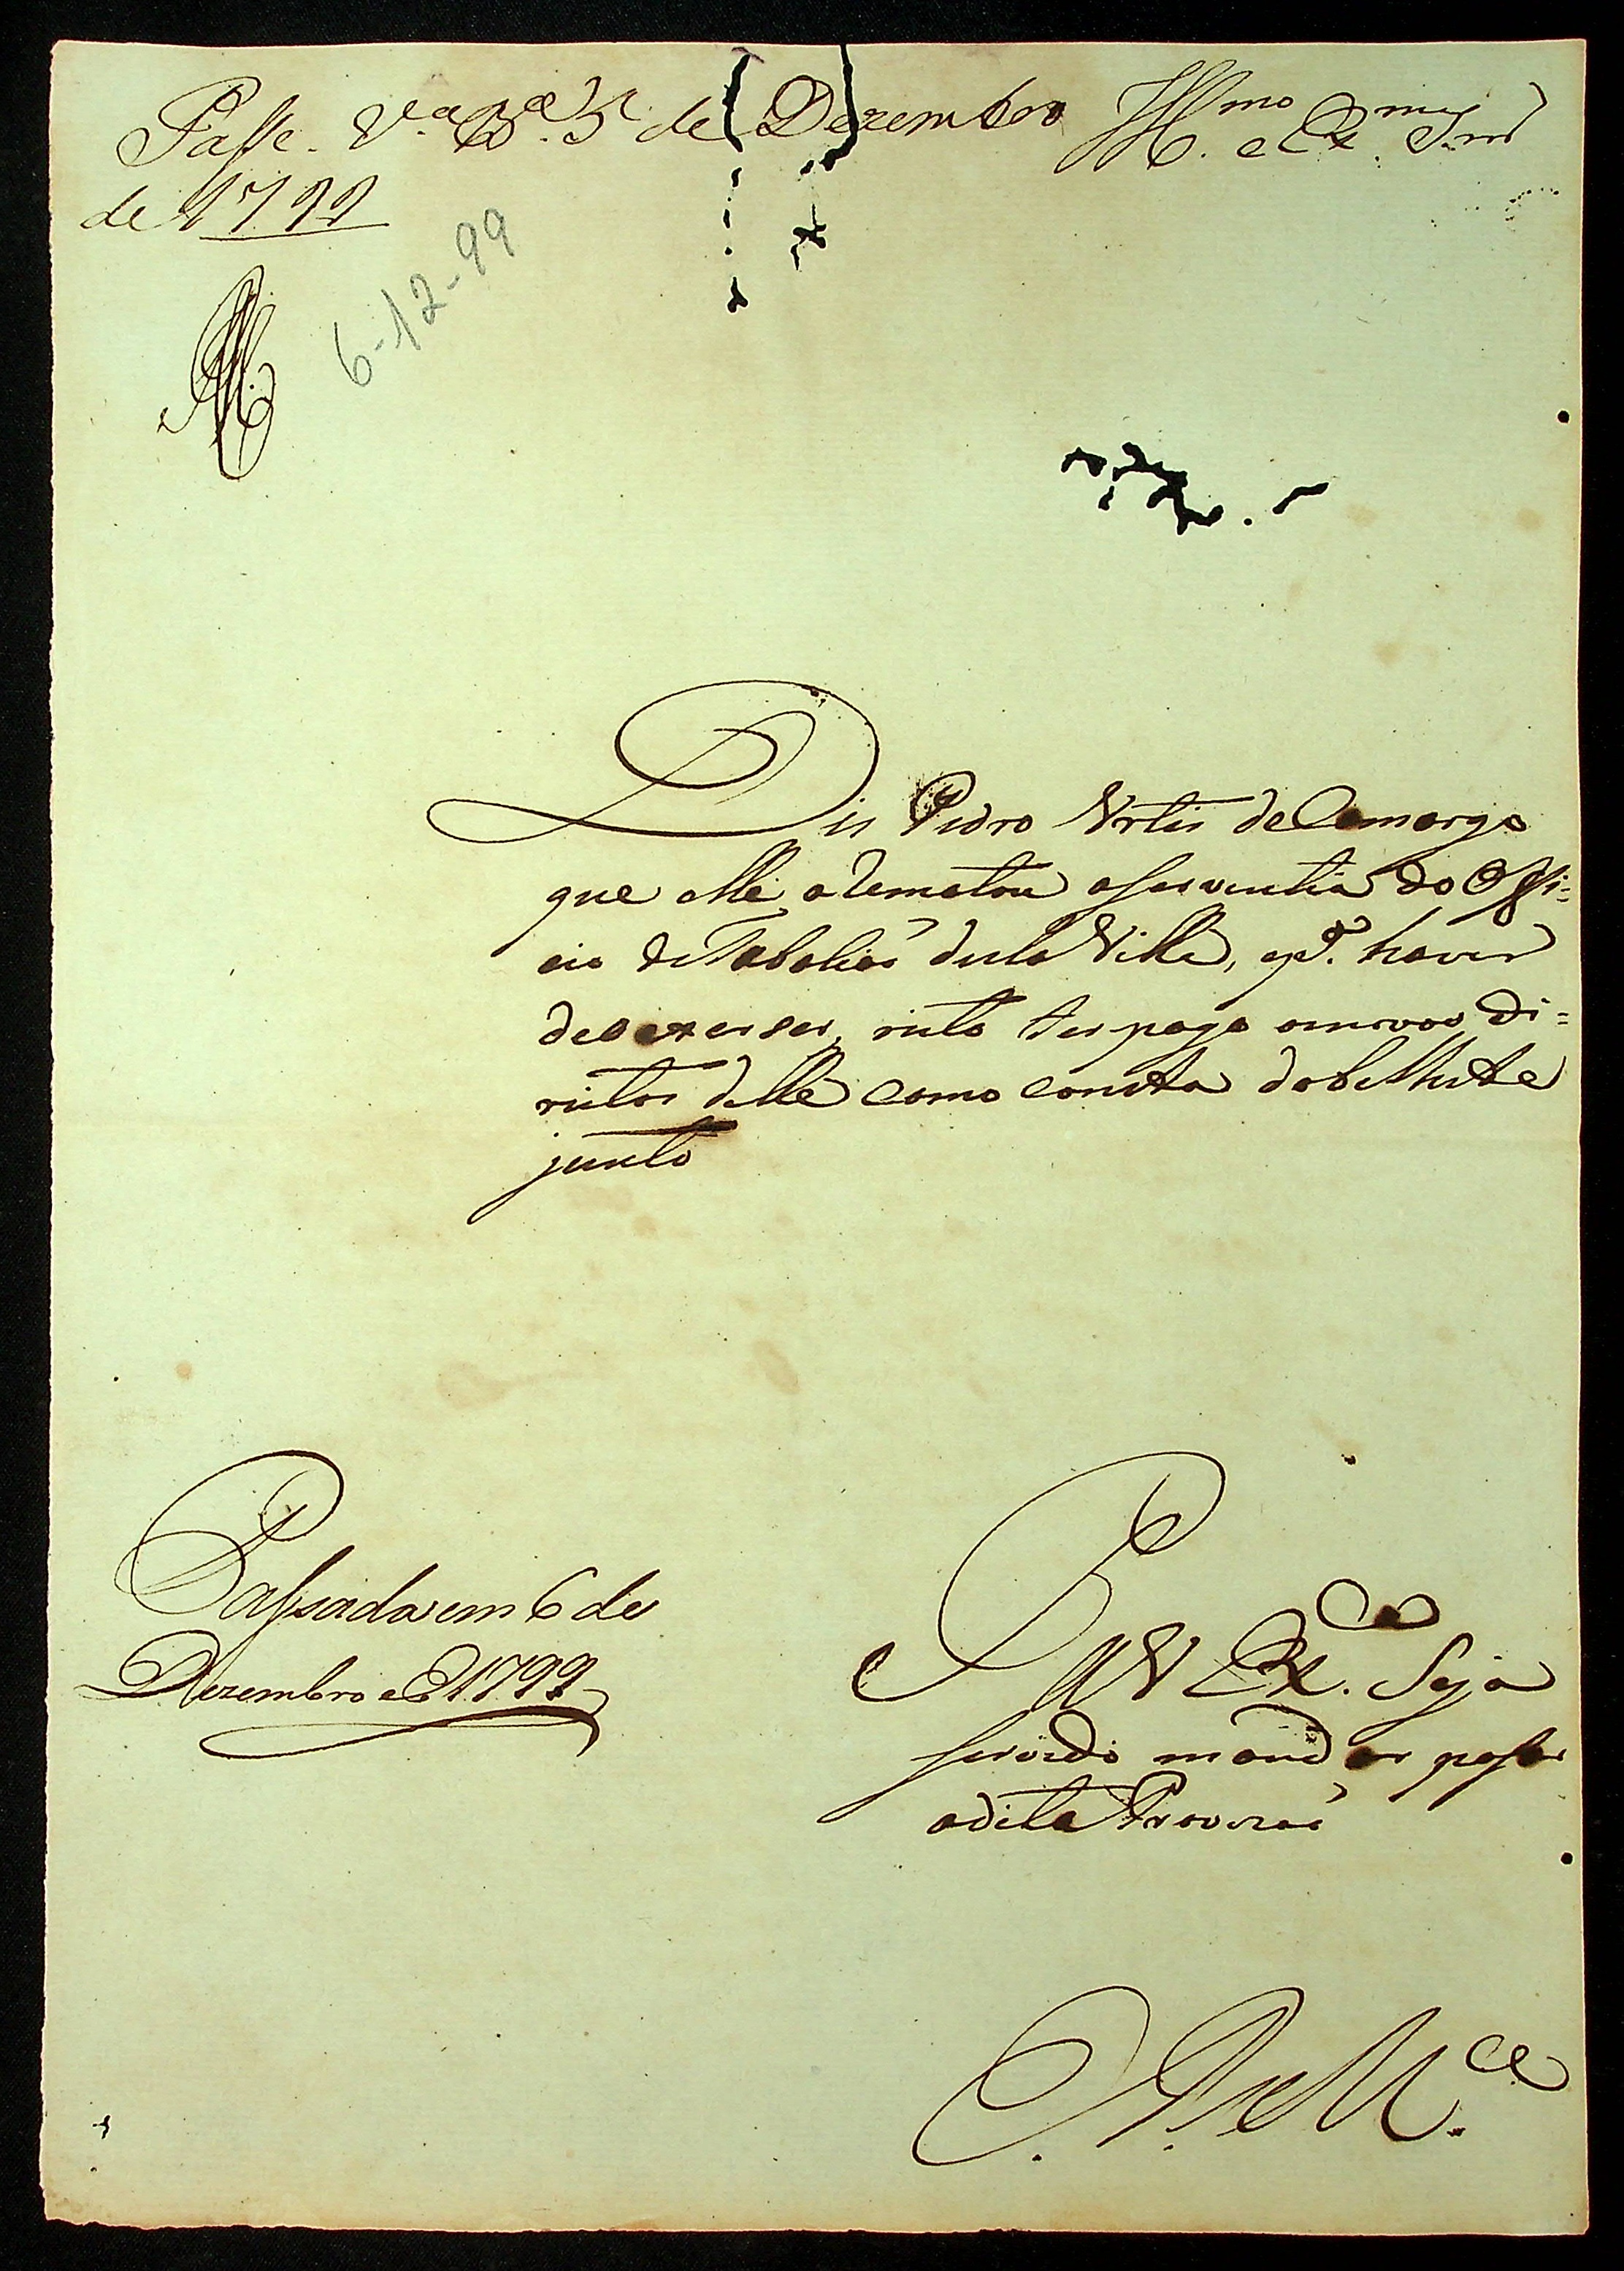 Passe. V.ª B.ª 5 de Dezembro
de 1799
6-12-99
Ill.mo e Ex.mo Snr
Dis Pedro Ortis de Camargo
que elle aRematou aserventia do Offi:
cio de Tabaliaõ desta Villa, e p.ª haver
de o exerser, visto ter pago os novos Di=
reitos delle como consta do bilhete
junto
P. a V Ex.ca Seja
servido mandar passar
adita Provizaõ
Passada em 6 de
Dezembro de 1799
E. R. M.ce